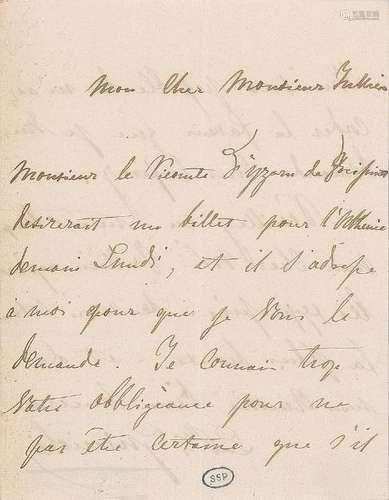 Mon Cher Monsieur Jullien
Monsieur le Vicomte D'yzarn de Freissinet
desirerait un billet pour l'Athenée
demain Lundi, et il s'adresse
à moi pour que je vous le
demande. Je connais trop
votre obbligeance pour ne
pas être certaine que s'il
SSP